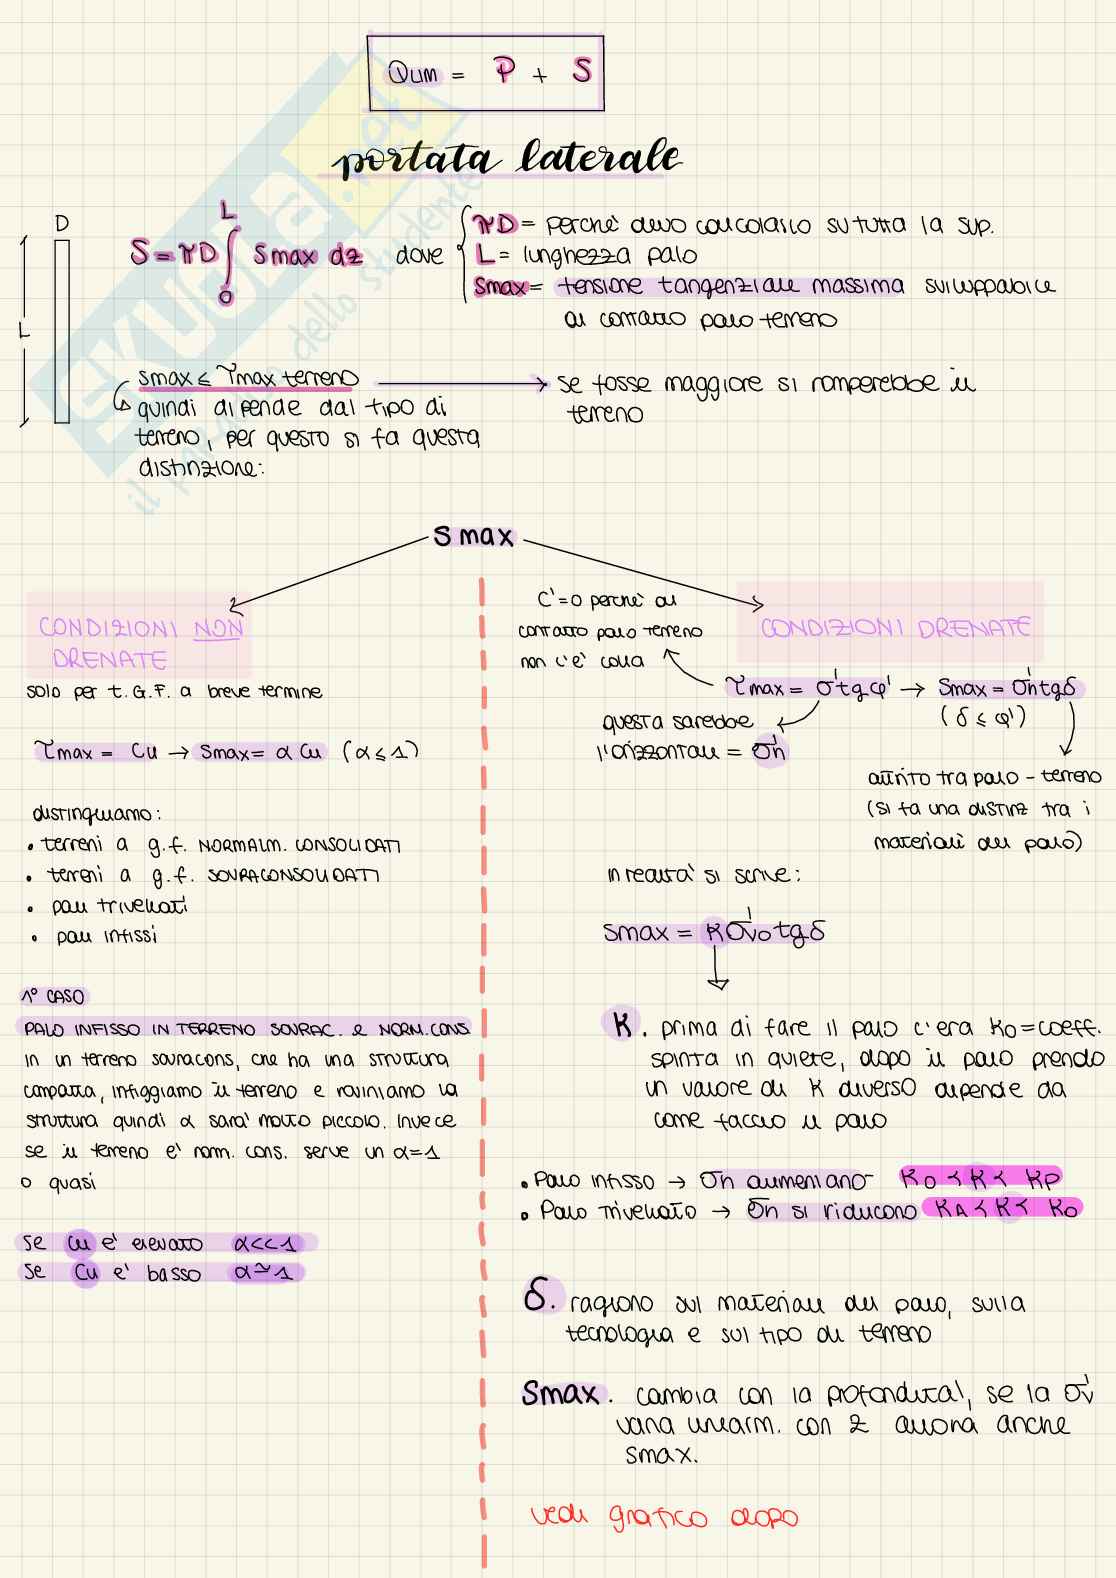 Qlim = P + S
portata laterale
D
L
S = πD ∫ smax dz dove
L
0
πD = perchè devo calcolarlo su tutta la sup.
L = lunghezza palo
Smax = tensione tangenziale massima sviluppabile
al contatto palo terreno
smax ≤ τmax terreno → se fosse maggiore si romperebbe il
terreno
quindi dipende dal tipo di
terreno, per questo si fa questa
distinzione:
Skuola.net
il portale dello studente
Smax
CONDIZIONI NON
DRENATE
solo per t. G.F. a breve termine
τmax = Cu → Smax = α Cu (α ≤ 1)
distinguiamo:
• terreni a g.f. NORMALM. CONSOLIDATI
• terreni a g.f. SOVRACONSOLIDATI
• pali trivellati
• pali infissi
1° CASO
PALO INFISSO IN TERRENO SOVRAC. e NORM.CONS.
In un terreno sovracons, che ha una struttura
compatta, infiggiamo il terreno e roviniamo la
struttura quindi α sarà molto piccolo. Invece
se il terreno è norm. cons. serve un α=1
o quasi
Se Cu è elevato α<<1
Se Cu è basso α≃1
CONDIZIONI DRENATE
C'=0 perchè al
contatto palo terreno
non c'è colla
τmax = σ'tgφ' → Smax = σ'h tgδ
(δ ≤ φ')
questa sarebbe
l'orizzontale = σ'h
attrito tra palo - terreno
(si fa una distinz tra i
materiali del palo)
in realtà si scrive:
Smax = K σ'vo tgδ
K. prima di fare il palo c'era Ko = coeff.
spinta in quiete, dopo il palo prendo
un valore di K diverso dipende da
come faccio il palo
• Palo infisso → σh aumentano Ko < K < Kp
• Palo trivellato → σh si riducono KA < K < Ko
δ. ragiono sul materiale del palo, sulla
tecnologia e sul tipo di terreno
Smax. cambia con la profondità, se la σ'v
varia linearm. con z allora anche
smax.
vedi grafico dopo